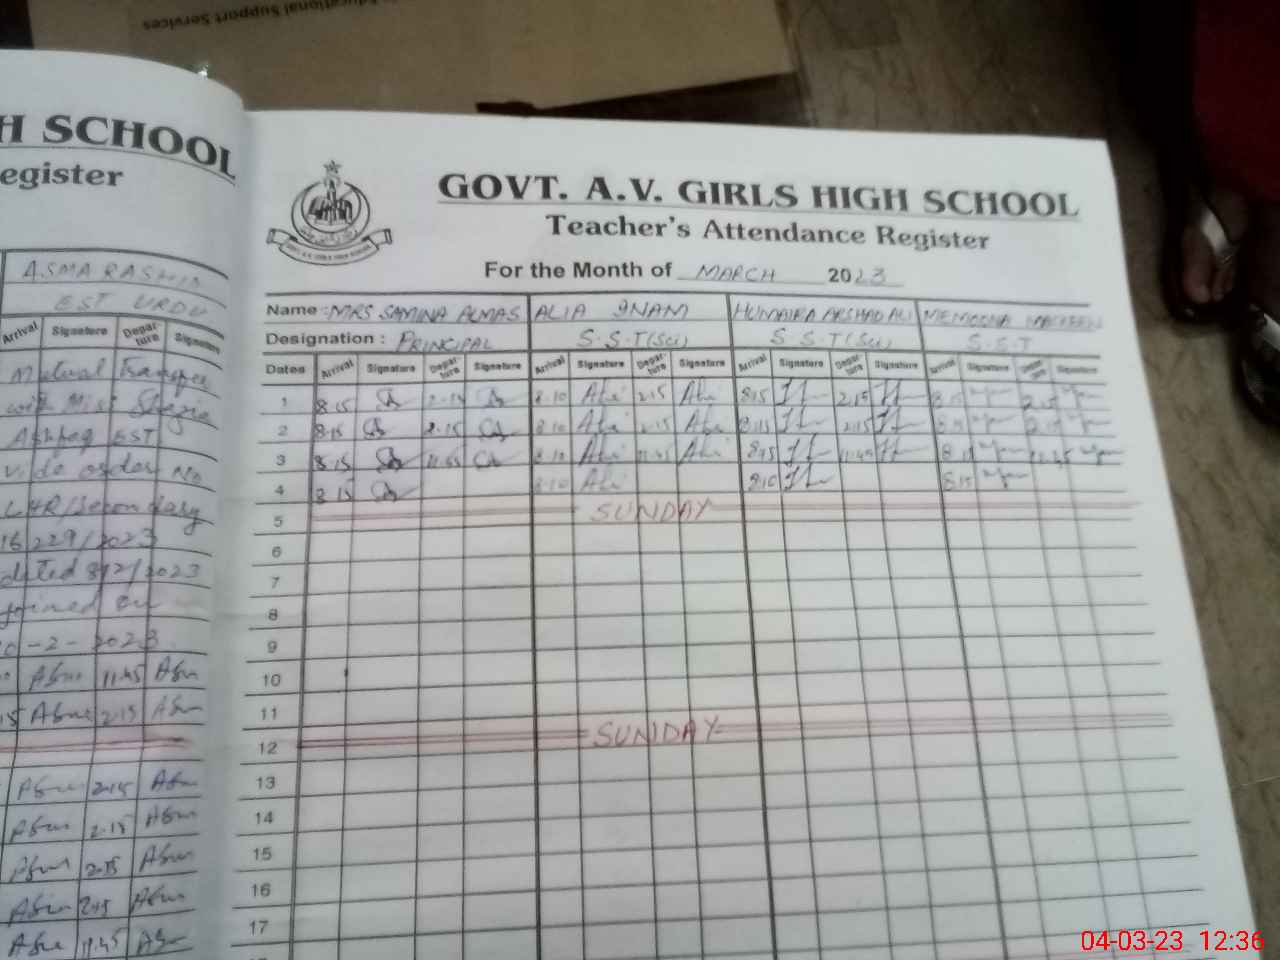 Educational Support Services
H SCHOOL
egister
ASMA RASHID
EST URDU
Arrival Signature Depar-ture Signature
Mutual Transfer
with Miss Shazia
Ashfaq EST
vide order No
LHR/Secondary
16229/2023
dated 8/2/2023
joined on
10-2-2023
Asma 11.45 Asma
15 Asma 2.15 Asma
Asma 2.15 Asma
Asma 2.15 Asma
Asma 2.15 Asma
Asma 2.15 Asma
Asma 11.45 Asma
GOVT. A.V. GIRLS HIGH SCHOOL
Teacher's Attendance Register
For the Month of MARCH 2023
Name : MRS SAMINA ALMAS ALIA INAM HUMAIRA ARSHAD ALI MEMOONA
Designation : PRINCIPAL S.S.T(Sci) S.S.T(Sci) S.S.T
Dates Arrival Signature Depar-ture Signature Arrival Signature Depar-ture Signature Arrival Signature Depar-ture Signature Arrival Signature Depar-ture Signature
1 8.15 2.15 8.10 Alia 2.15 Alia 8.15 2.15 8.15 2.15
2 8.15 2.15 8.10 Alia 2.15 Alia 8.15 2.15 8.15 2.15
3 8.15 11.45 8.10 Alia 11.45 Alia 8.15 11.45 8.15 11.45
4 8.15 8.10 Alia 8.10 8.15
5 SUNDAY
6
7
8
9
10
11
12 SUNDAY
13
14
15
16
17
04-03-23 12:36